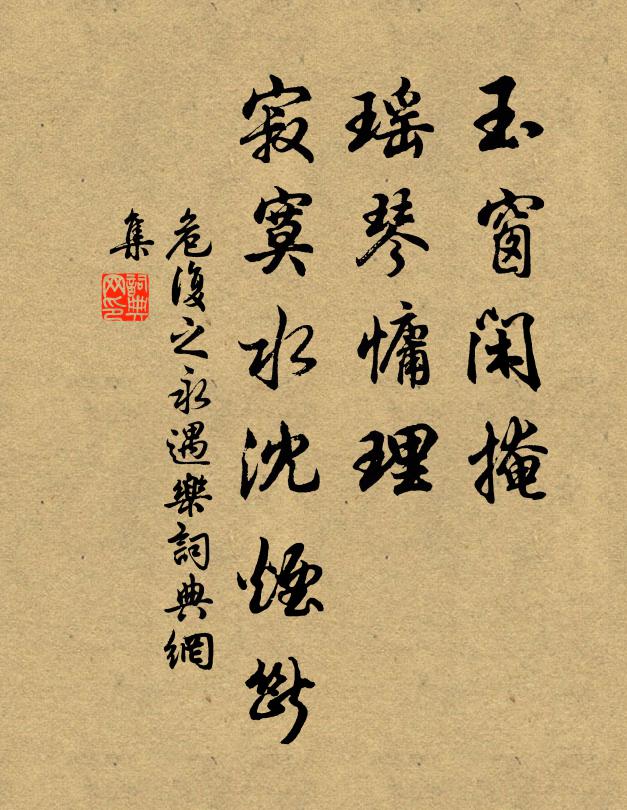 玉窗閑掩
瑶琴慵理
寂寞水沈煙斷
危復之永遇樂詞典網
集
詞典
网印